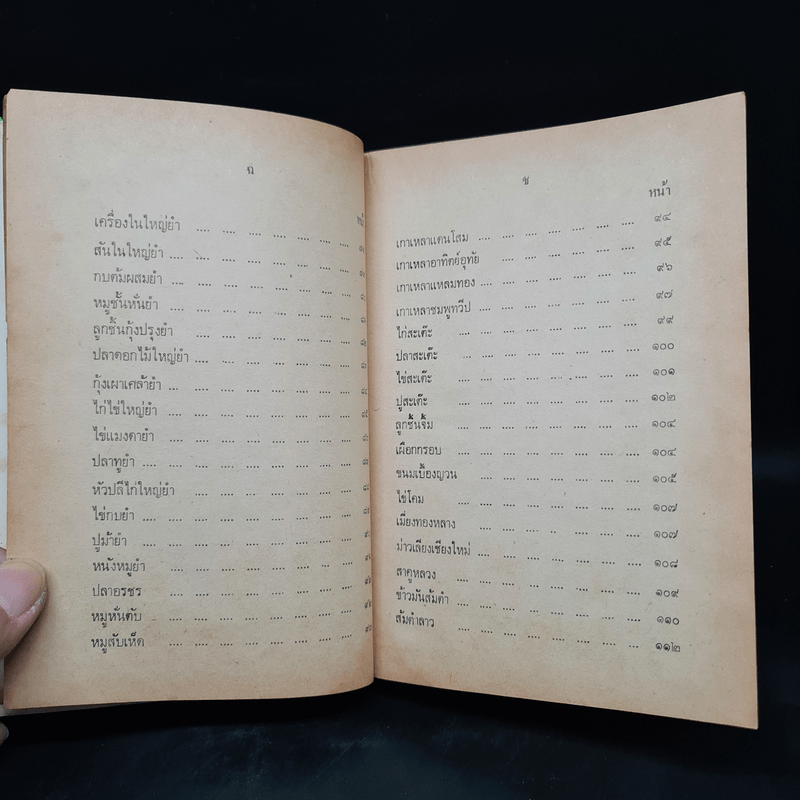 ฉ
เครื่องในใหญ่ยำ .... .... .... .... .... .... ....
สันในใหญ่ยำ .... .... .... .... .... .... ....
กบต้มผสมยำ .... .... .... .... .... .... ....
หมูชั้นหั่นยำ .... .... .... .... .... .... ....
ลูกชิ้นกุ้งปรุงยำ .... .... .... .... .... .... ....
ปลาดอกไม้ใหญ่ยำ .... .... .... .... .... .... ....
กุ้งเผาเคล้ายำ ... .... .... .... .... .... ....
ไก่ไข่ใหญ่ยำ .... .... .... .... .... .... ....
ไข่แมงดายำ .... .... .... .... .... .... ....
ปลาทูยำ .... .... .... .... .... .... .... ....
หัวปลีไก่ใหญ่ยำ .... .... .... .... .... .... ....
ไข่กบยำ .... .... .... .... .... .... .... ....
ปูม้ายำ .... .... .... .... .... .... .... ....
หนังหมูยำ .... .... .... .... .... .... ....
ปลาอรชร .... .... .... .... .... .... ....
หมูหั่นตับ .... .... .... .... .... .... ....
หมูสับเห็ด .... .... .... .... .... .... ....
ช
หน้า
เกาเหลาแดนโสม .... .... .... .... .... .... .... ๙๔
เกาเหลาอาทิตย์อุทัย .... .... .... .... .... .... ๙๕
เกาเหลาแหลมทอง .... .... .... .... .... .... ๙๖
เกาเหลาชมพูทวีป .... .... .... .... .... .... ๙๗
ไก่สะเต๊ะ .... .... .... .... .... .... .... ๙๙
ปลาสะเต๊ะ .... .... .... .... .... .... .... ๑๐๐
ไข่สะเต๊ะ .... .... .... .... .... .... .... ๑๐๑
ปูสะเต๊ะ .... .... .... .... .... .... .... ๑๐๒
ลูกชิ้นจิ้ม .... .... .... .... .... .... .... ๑๐๔
เผือกกรอบ .... .... .... .... .... .... .... ๑๐๔
ขนมเบื้องญวน .... .... .... .... .... .... .... ๑๐๕
ไข่โคม .... .... .... .... .... .... .... ๑๐๗
เมี่ยงทองหลาง .... .... .... .... .... .... .... ๑๐๗
ม่าวเลียงเชียงใหม่ .... .... .... .... .... .... ๑๐๘
สาคูหลวง .... .... .... .... .... .... .... ๑๐๙
ข้าวมันส้มตำ .... .... .... .... .... .... .... ๑๑๐
ส้มตำลาว .... .... .... .... .... .... .... ๑๑๒